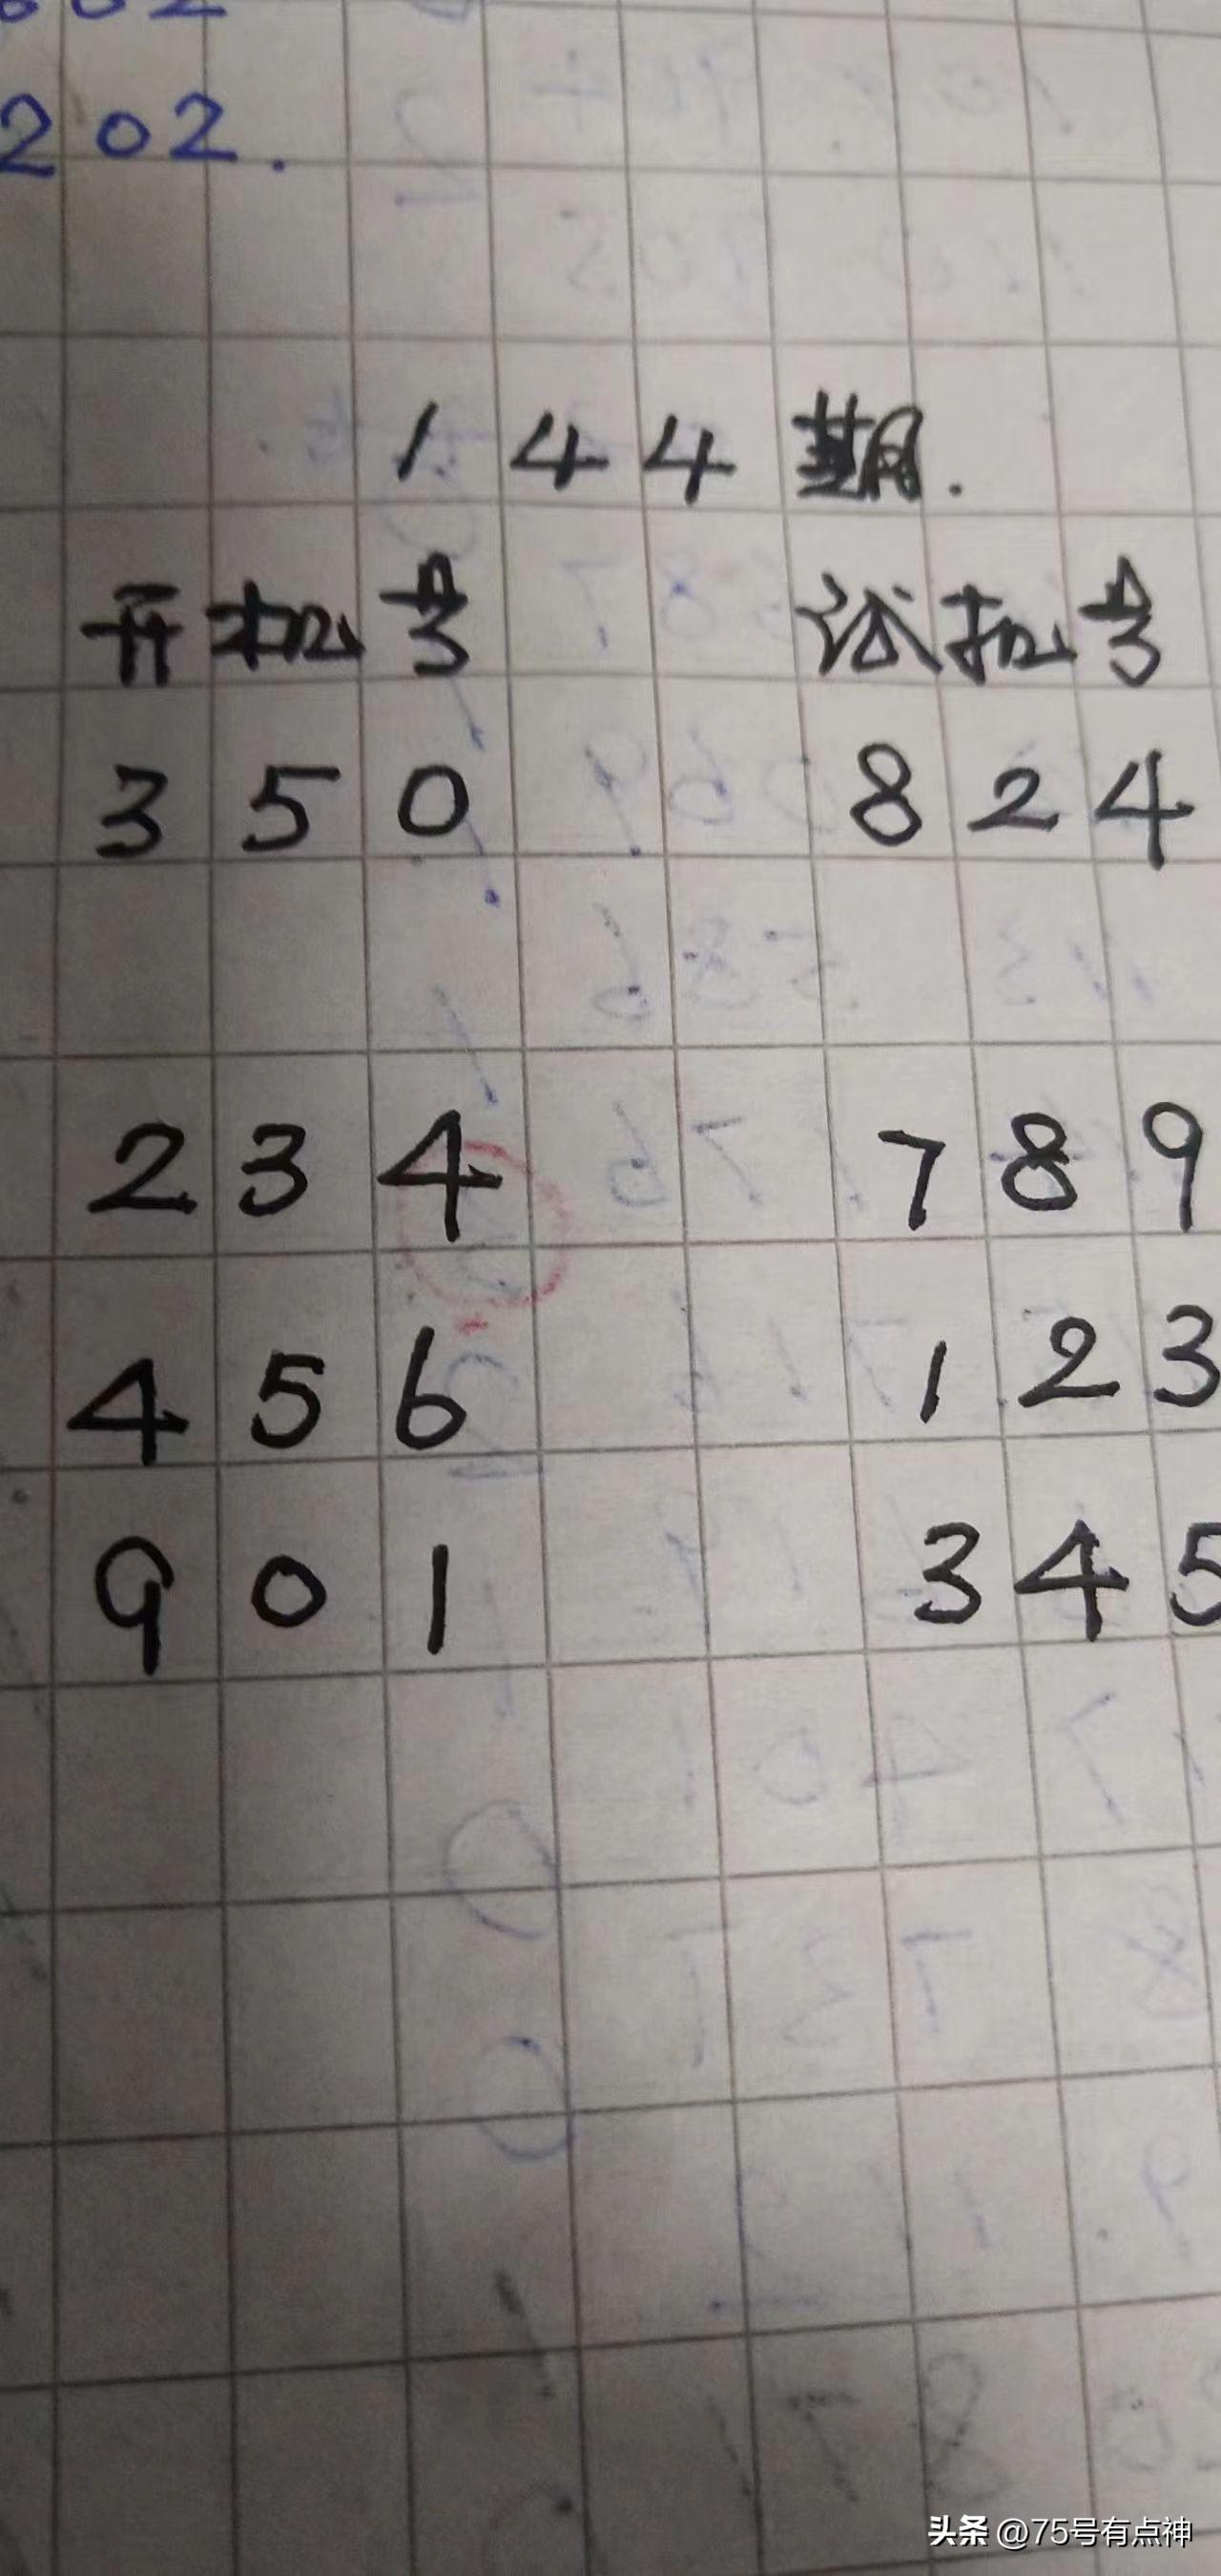 202.
144期.
开机号 试机号
350 824
234 789
456 123
901 345
头条 @75号有点神